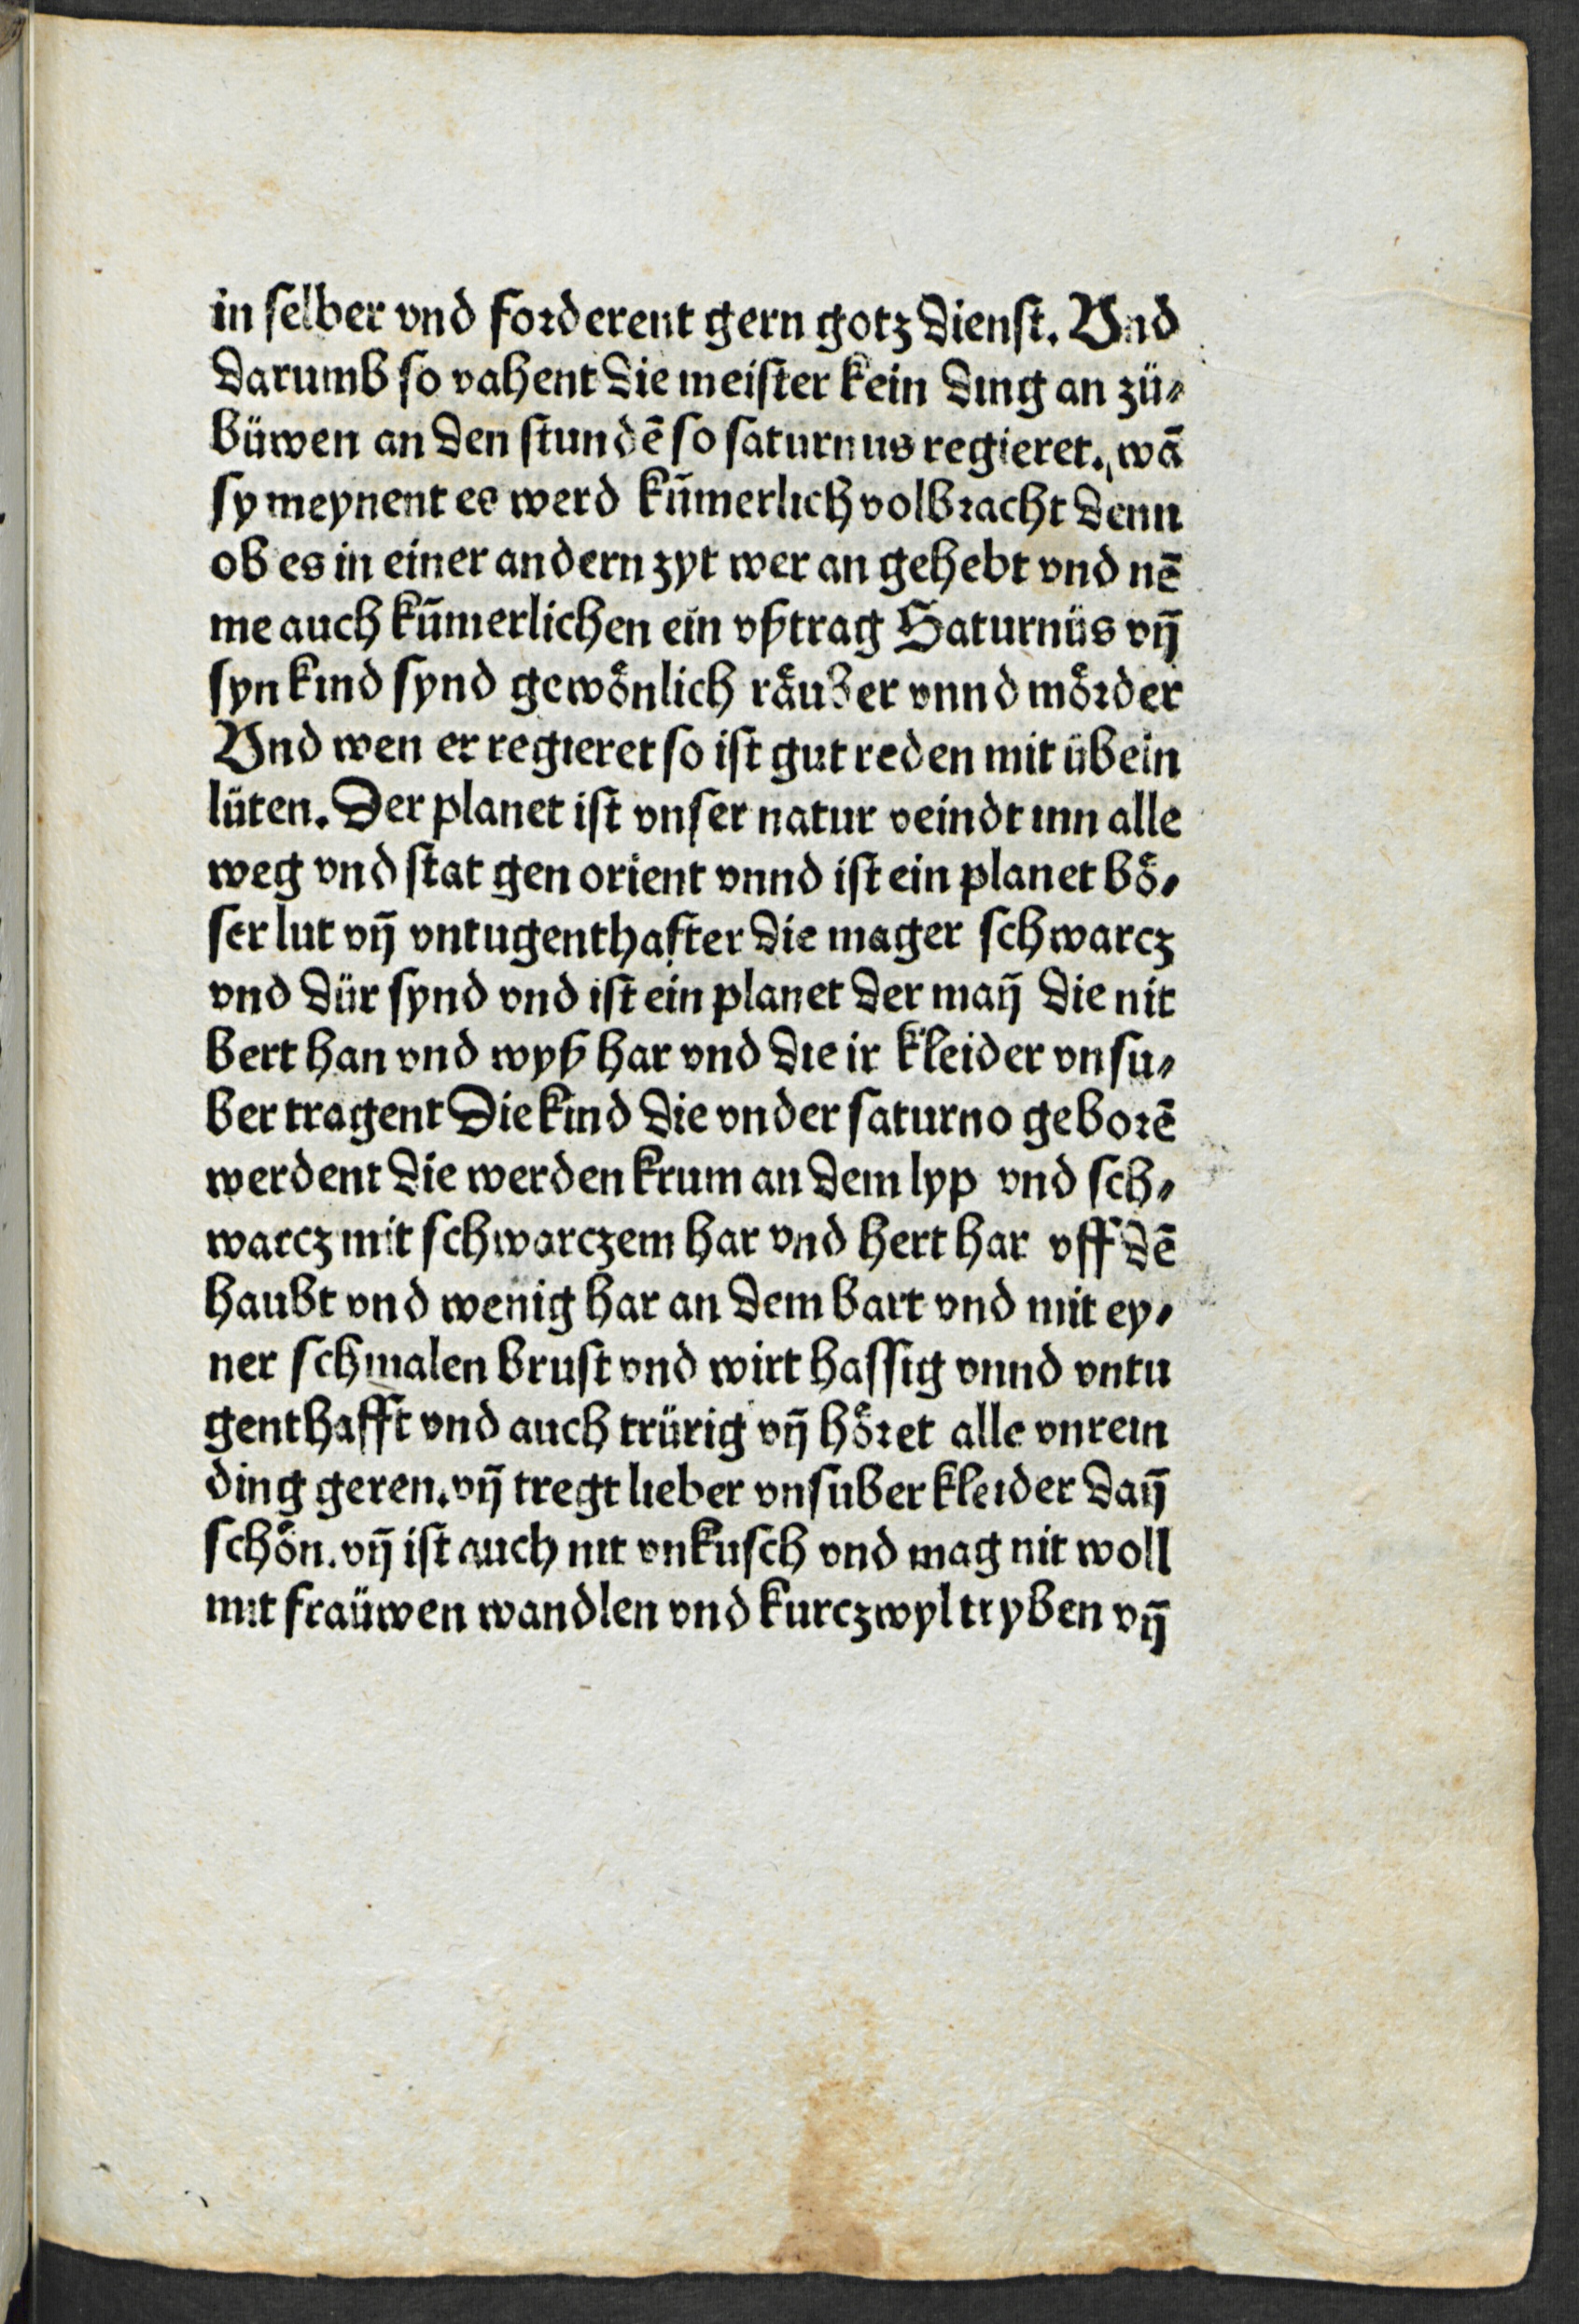 in ſelber vnd forderent gern gotz dienſt. Vnd
darumb ſo vahent die meiſter kein ding an zü⸗
büwen an den ſtundē ſo ſaturnus regieret., wā
ſy meynent es werd kūmerlich volbracht denn
ob es in einer andern zyt wer an gehebt vnd nē
me auch kūmerlichen ein vßtrag Saturnüs vn̄
ſyn kind ſynd gewoͤnlich raͤuber vnnd moͤrder
Vnd wen er regieret ſo iſt gut reden mit übeln
lüten. Der planet iſt vnſer natur veindt inn alle
weg vnd ſtat gen orient vnnd iſt ein planet boͤ⸗
ſer lut vn̄ vntugenthafter die mager ſchwarcz
vnd dür ſynd vnd iſt ein planet der man̄ die nit
bert han vnd wyß har vnd die ir kleider vnſu⸗
ber tragent Die kind die vnder ſaturno geborē
werdent die werden krum an dem lyp vnd ſch⸗
warcz mit ſchwarczem har vnd hert har vff dē
haubt vnd wenig har an dem bart vnd mit ey⸗
ner ſchmalen bruſt vnd wirt haſſig vnnd vntu
genthafft vnd auch trürig vn̄ hoͤret alle vnrein
ding geren. vn̄ tregt lieber vnſuber kleider dan̄
ſchoͤn. vn̄ iſt auch nit vnkuſch vnd mag nit woll
mit fraüwen wandlen vnd kurczwyl tryben vn̄